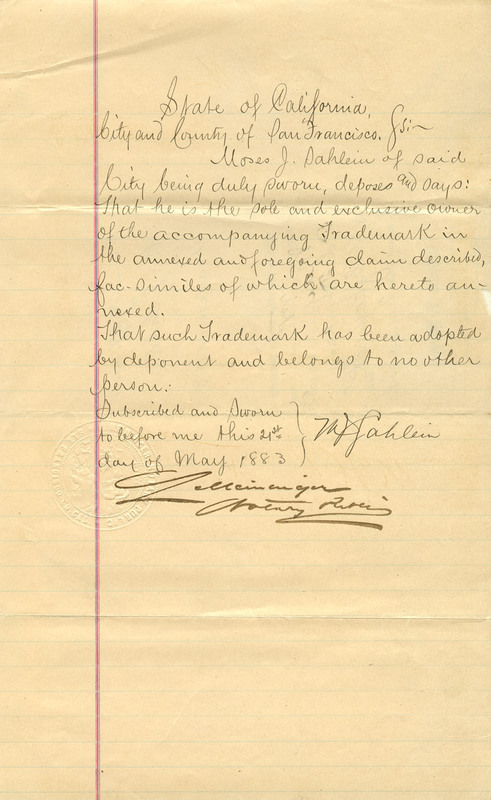 State of California,
City and County of San Francisco. } ss
Moses J. Sahlein of said
City being duly sworn, deposes and says:
That he is the sole and exclusive owner
of the accompanying Trademark in
the annexed and foregoing claim described,
fac-similes of which are hereto an-
nexed.
That such Trademark has been adopted
by deponent and belongs to no other
person.
Subscribed and Sworn
to before me this 21st
day of May 1883
M J Sahlein
Meininger
Notary Public